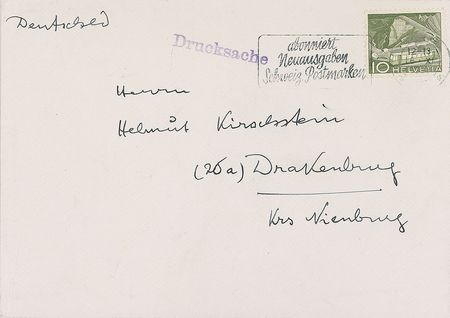 Deutschld
Drucksache
abonniert
Neuausgaben
Schweiz. Postmarken
12-13
10 HELVETIA
Herrn
Helmut Kirschstein
(20a) Drakenburg
Krs Nienburg